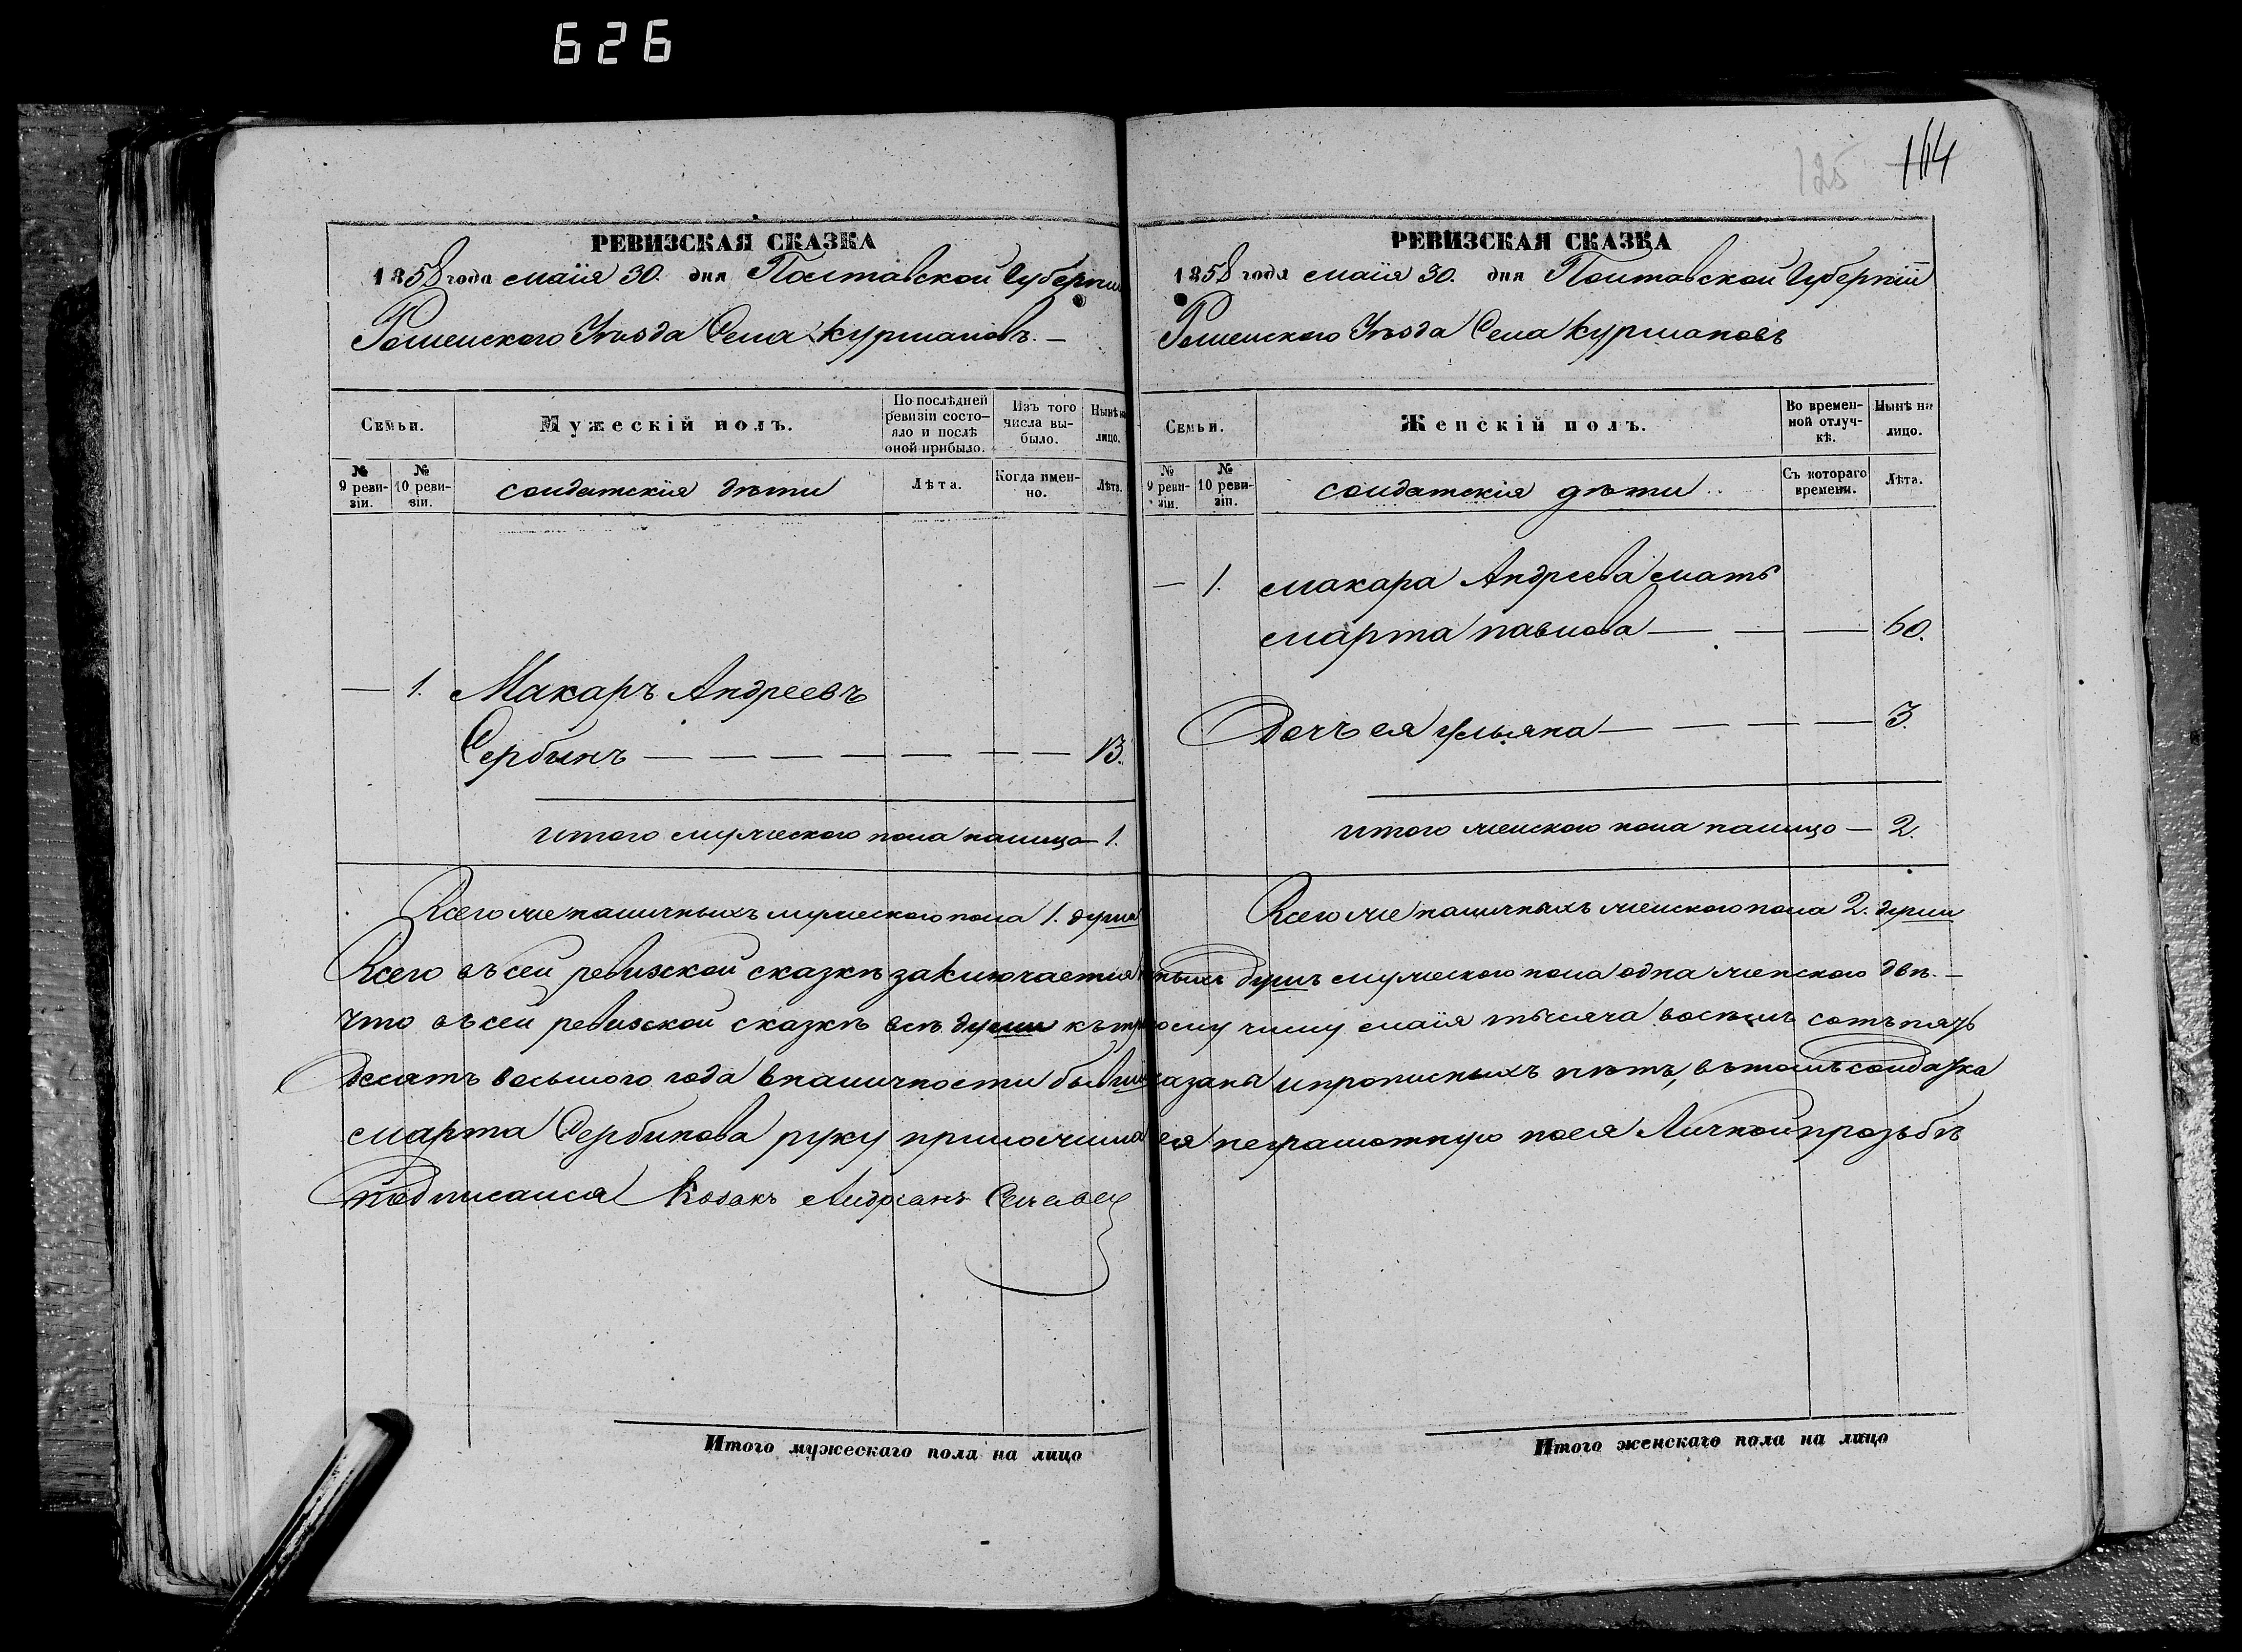 626
125 114
РЕВИЗСКАЯ СКАЗКА
1858 года маiя 30. дня Полтавской Губернiи
Роменского Уѣзда Села Курмановъ. —
Семьи.
Мужескiй полъ.
По послѣдней ревизiи состо-
яло и послѣ
оной прибыло.
Изъ того
числа вы-
было.
Нынѣ на
лицо.
№
9 реви-
зiи.
№
10 реви-
зiи.
солдатскiя дѣти
Лѣта.
Когда имен-
но.
Лѣта.
— 1. Макаръ Андреевъ
Сербинъ — — — — — — — 13.
итого мужеского пола налицо — 1.
Всего же наличныхъ мужеского пола 1. душа
РЕВИЗСКАЯ СКАЗКА
1858 года маiя 30. дня Полтавской Губернiи
Роменского Уѣзда Села Курмановъ
Семьи.
Женскiй полъ.
Во времен-
ной отлуч-
кѣ.
Нынѣ на
лицо.
№
9 реви-
зiи.
№
10 реви-
зiи.
солдатскiя дѣти
Съ котораго
времени.
Лѣта.
— 1. макара Андреева мать
марта павлова — — — 60.
Дочь ея ульяна — — — — 3.
итого женского пола налицо — 2.
Всего же наличныхъ женского пола 2. души
Всего въ сей ревизской сказкѣ заключается ныхъ душъ мужеского пола одна женского двѣ. —
Что въ сей ревизской сказкѣ всѣ души къ му числу маiя тысяча восемь сотъ пять
десятъ восьмого года вналичности бывши казаны ипрописныхъ нѣтъ, вътомъ солдатка
марта Сербинова руку приложила ея неграмотную поея Личной прозьбѣ
подписался Козакъ Андрiанъ
Итого мужескаго пола на лицо
Итого женскаго пола на лицо